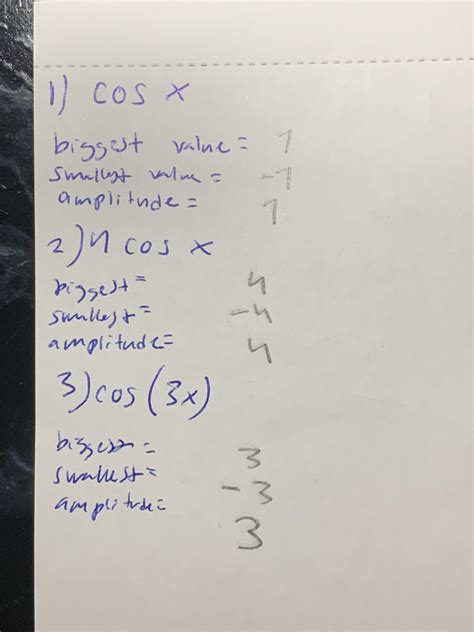 1) cos x
biggest value = 1
smallest value = -1
amplitude = 1
2) 4 cos x
biggest = 4
smallest = -4
amplitude = 4
3) cos (3x)
biggest = 3
smallest = -3
amplitude = 3